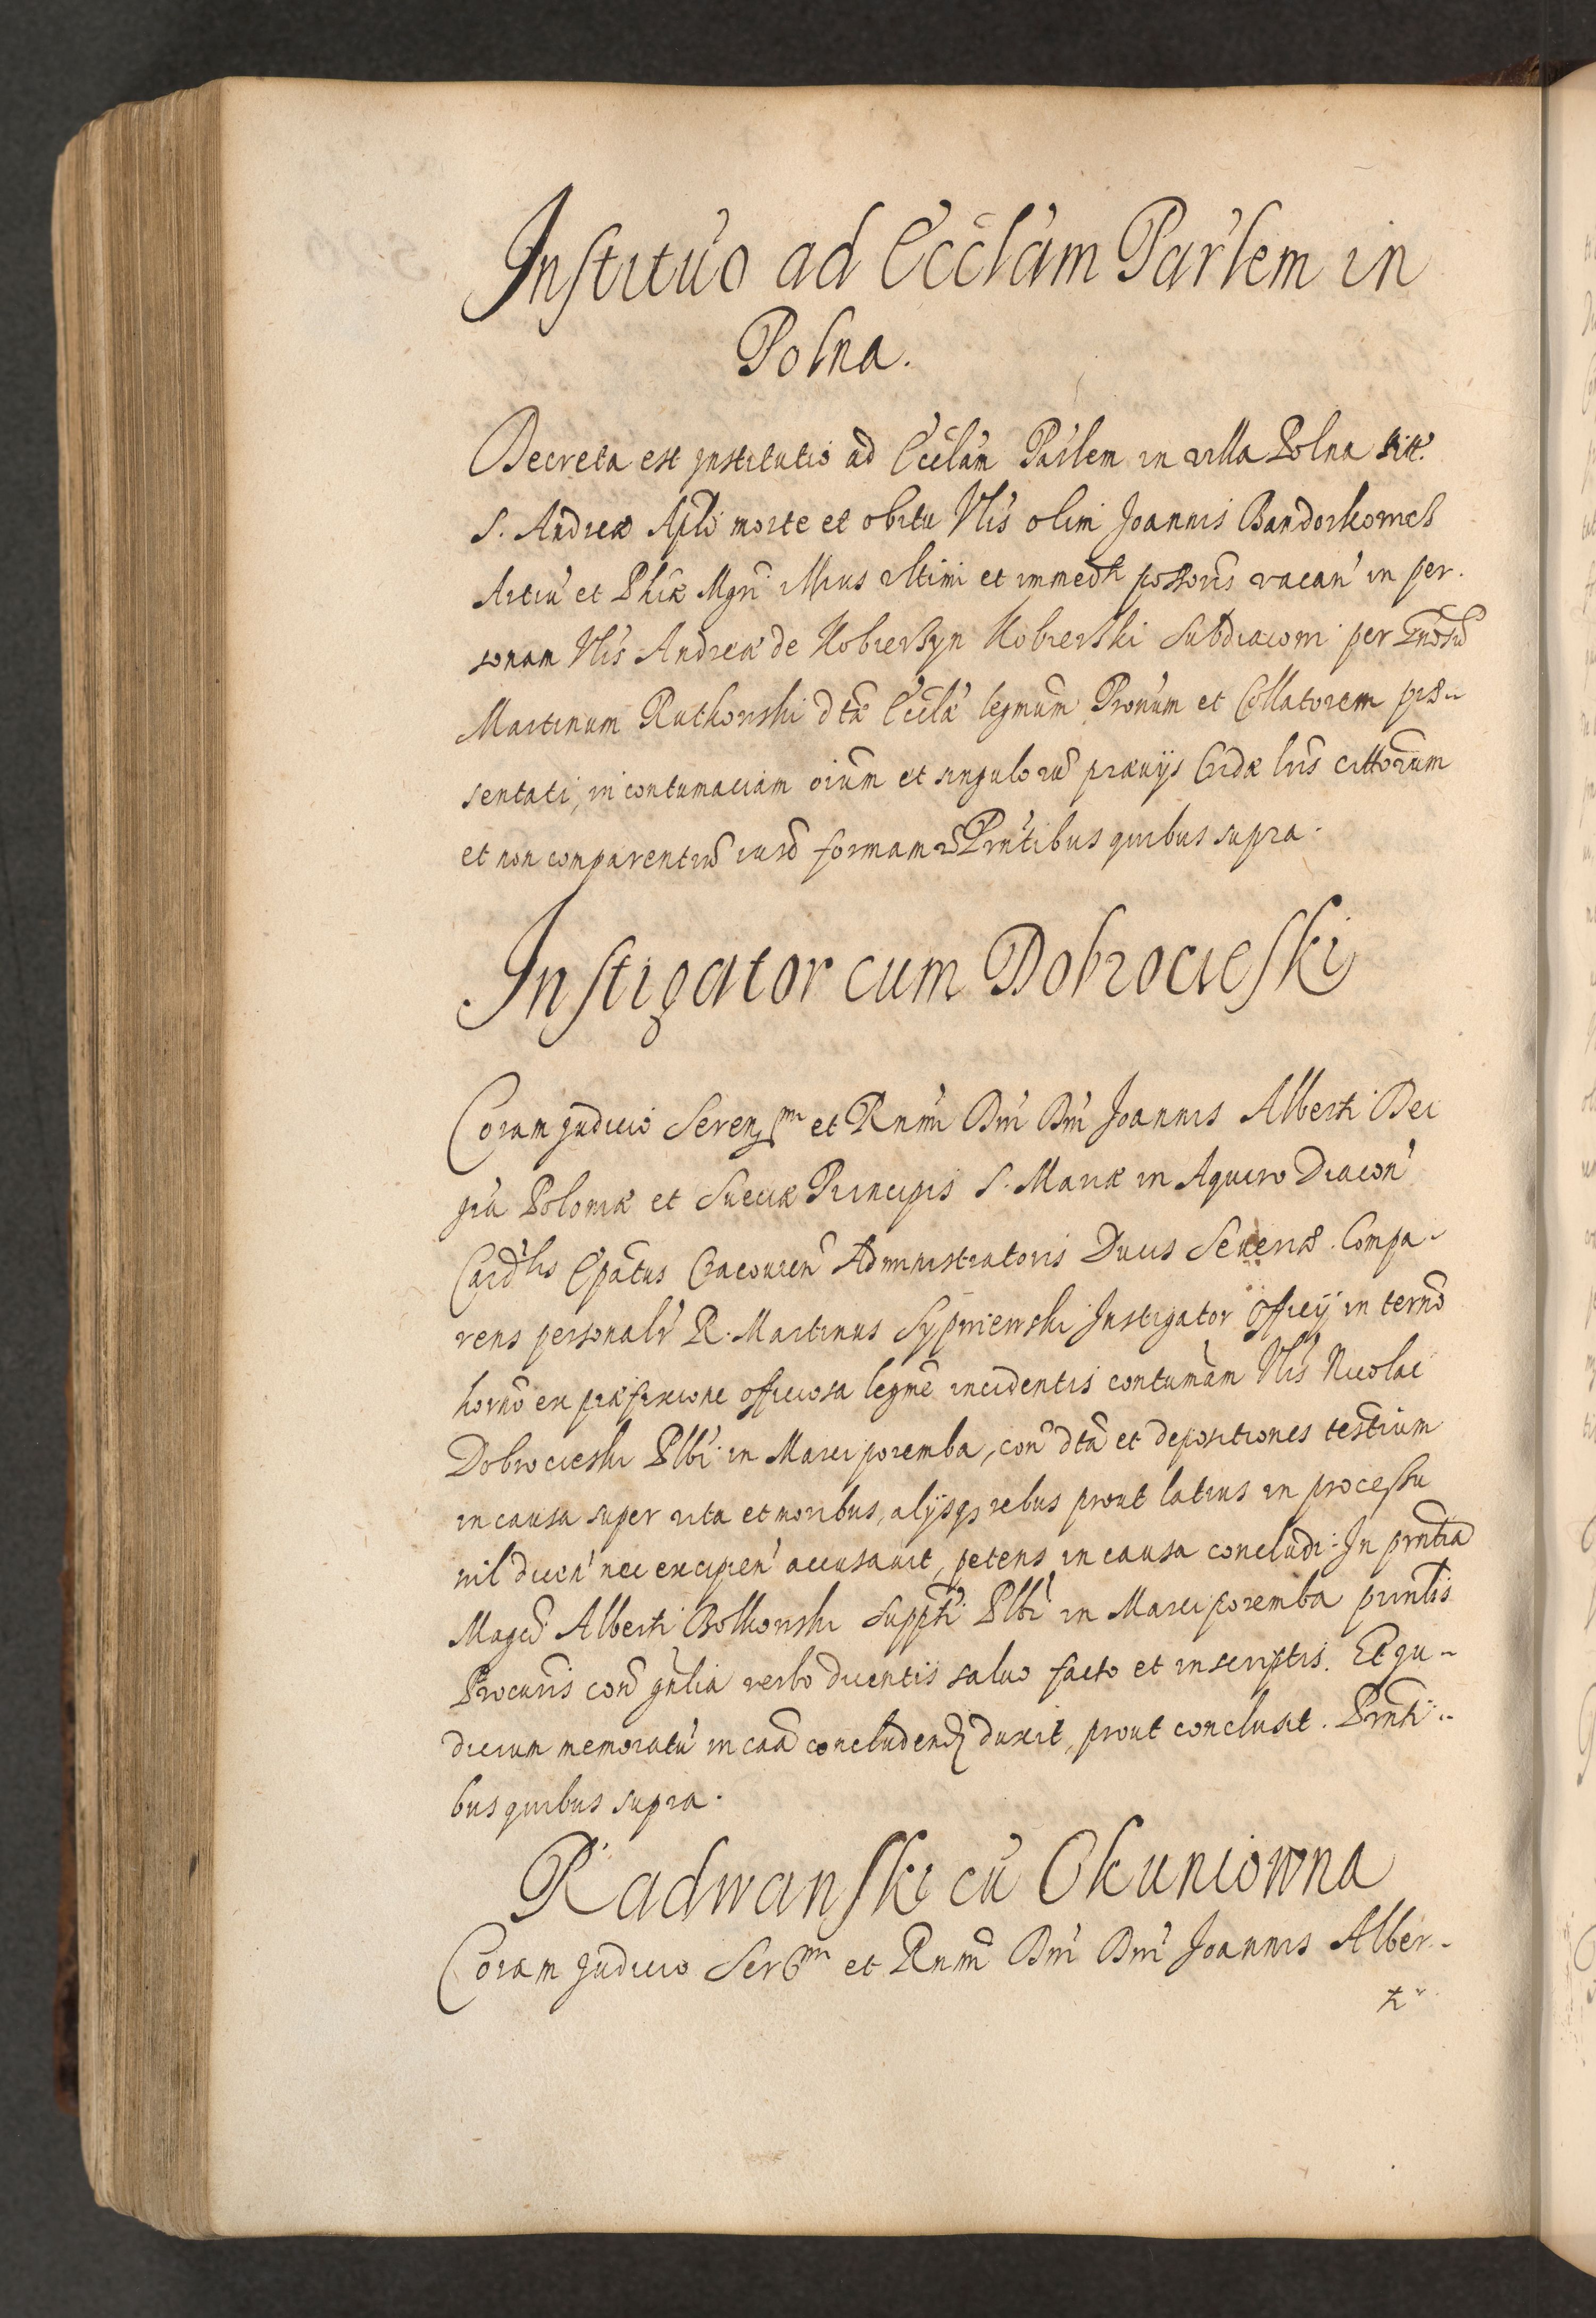 Institú́o ad Ecclám Par̃lem in
Polna.
Decreta est Institutio ad Ecclám Par̃lem in villa Polna tit.
S. Andreæ Apli morte et obitu Vlis olim Joannis Bandorkowicz
Artiu̇ et Phiæ Mgri illius ultimi et immedti possoris vacań in per.
sonam Vlis Andreæ de Kobierzyn Kobierski Subdiaconi per Gnosu
Martinum Rutkowski dtæ Ecclæ legmum Pronum et Collatorem præ-
sentati, in contumaciam oium et singuloru præuijs Cridæ lris cittorum
et non comparentiu iurõ formam Prntibus quibus supra.
Instigator cum Dobrocieski
Coram Judicio Sereniss^mi et Rnmi Dni Dni Joannis Alberti Dei
gra Poloniæ et Sueciæ Principis S. Mariæ in Aquiro Diacoń
Cardlis Epatus Cracouień Administratoris Ducis Seueriæ. Compa-
rens personalr R. Martinus Sypniewski Instigator Officij in terno
horno ex præfixione officiosa legme incidentis contumam Vlis Nicolai
Dobrocieski Plbi in Marciporemba, con dta et depositiones testium
in causa super vita et moribus, alijsqz rebus prout latius in processu
nil diceń nec excipień accusauit, petens in causa concludi. In prntia
Magci Alberti Bolkowski suppti Plbi in Marciporemba prinlis
Procuris con gnlia verbo dicentis saluo facto et in scriptis. Et Ju-
dicium memoratu in caa concludend duxit, prout conclusit. Prnti-
bus quibus supra.
Radwanski cu Okuniowna
Coram Judicio Ser^mi et Rnmi Dni Dni Joannis Alber-
ti